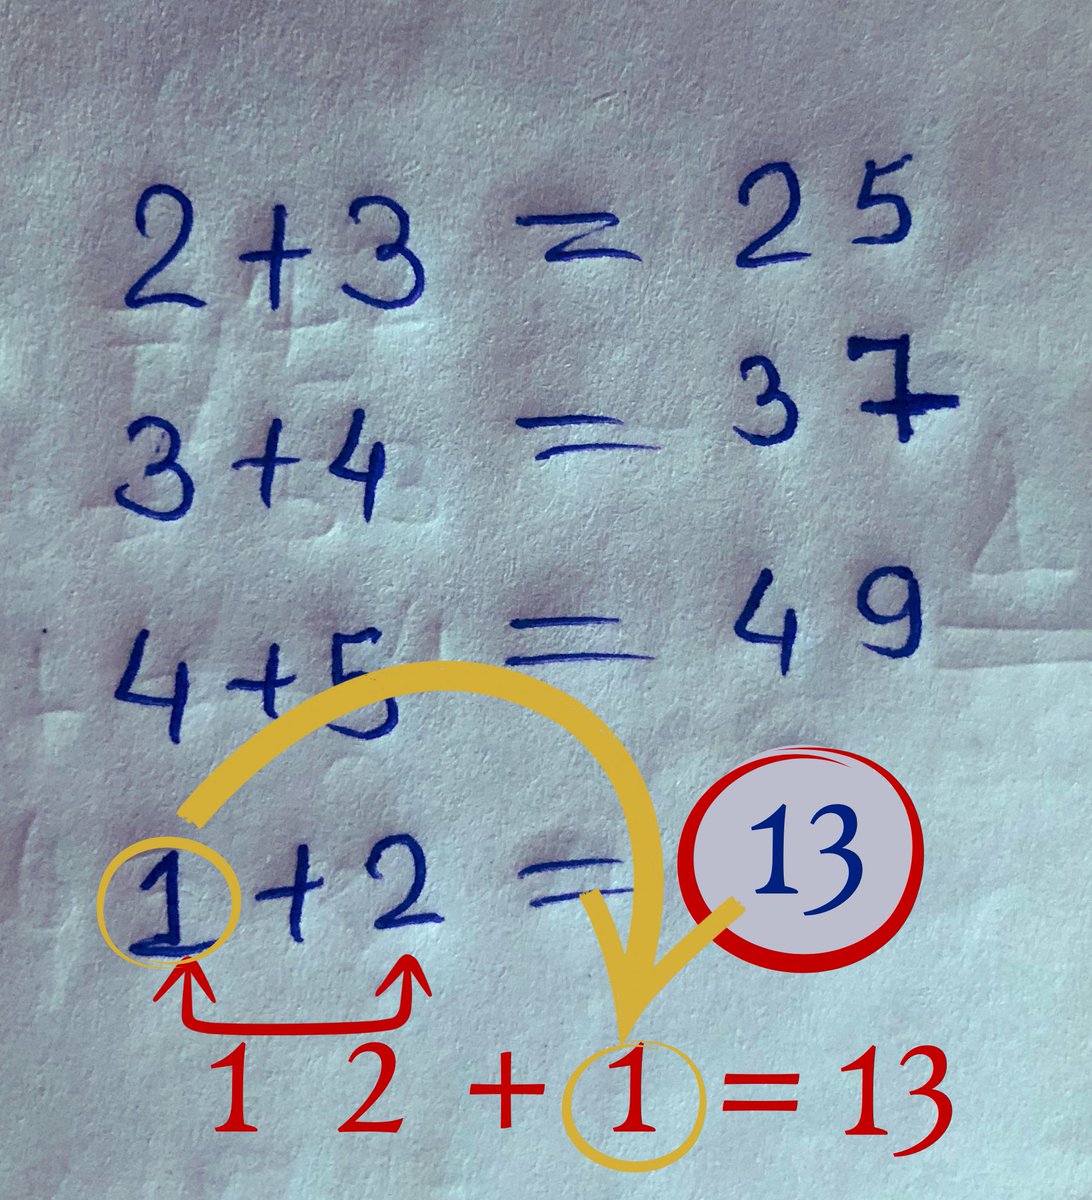 2 + 3 = 25
3 + 4 = 37
4 + 5 = 49
1 + 2 = 13
12 + 1 = 13